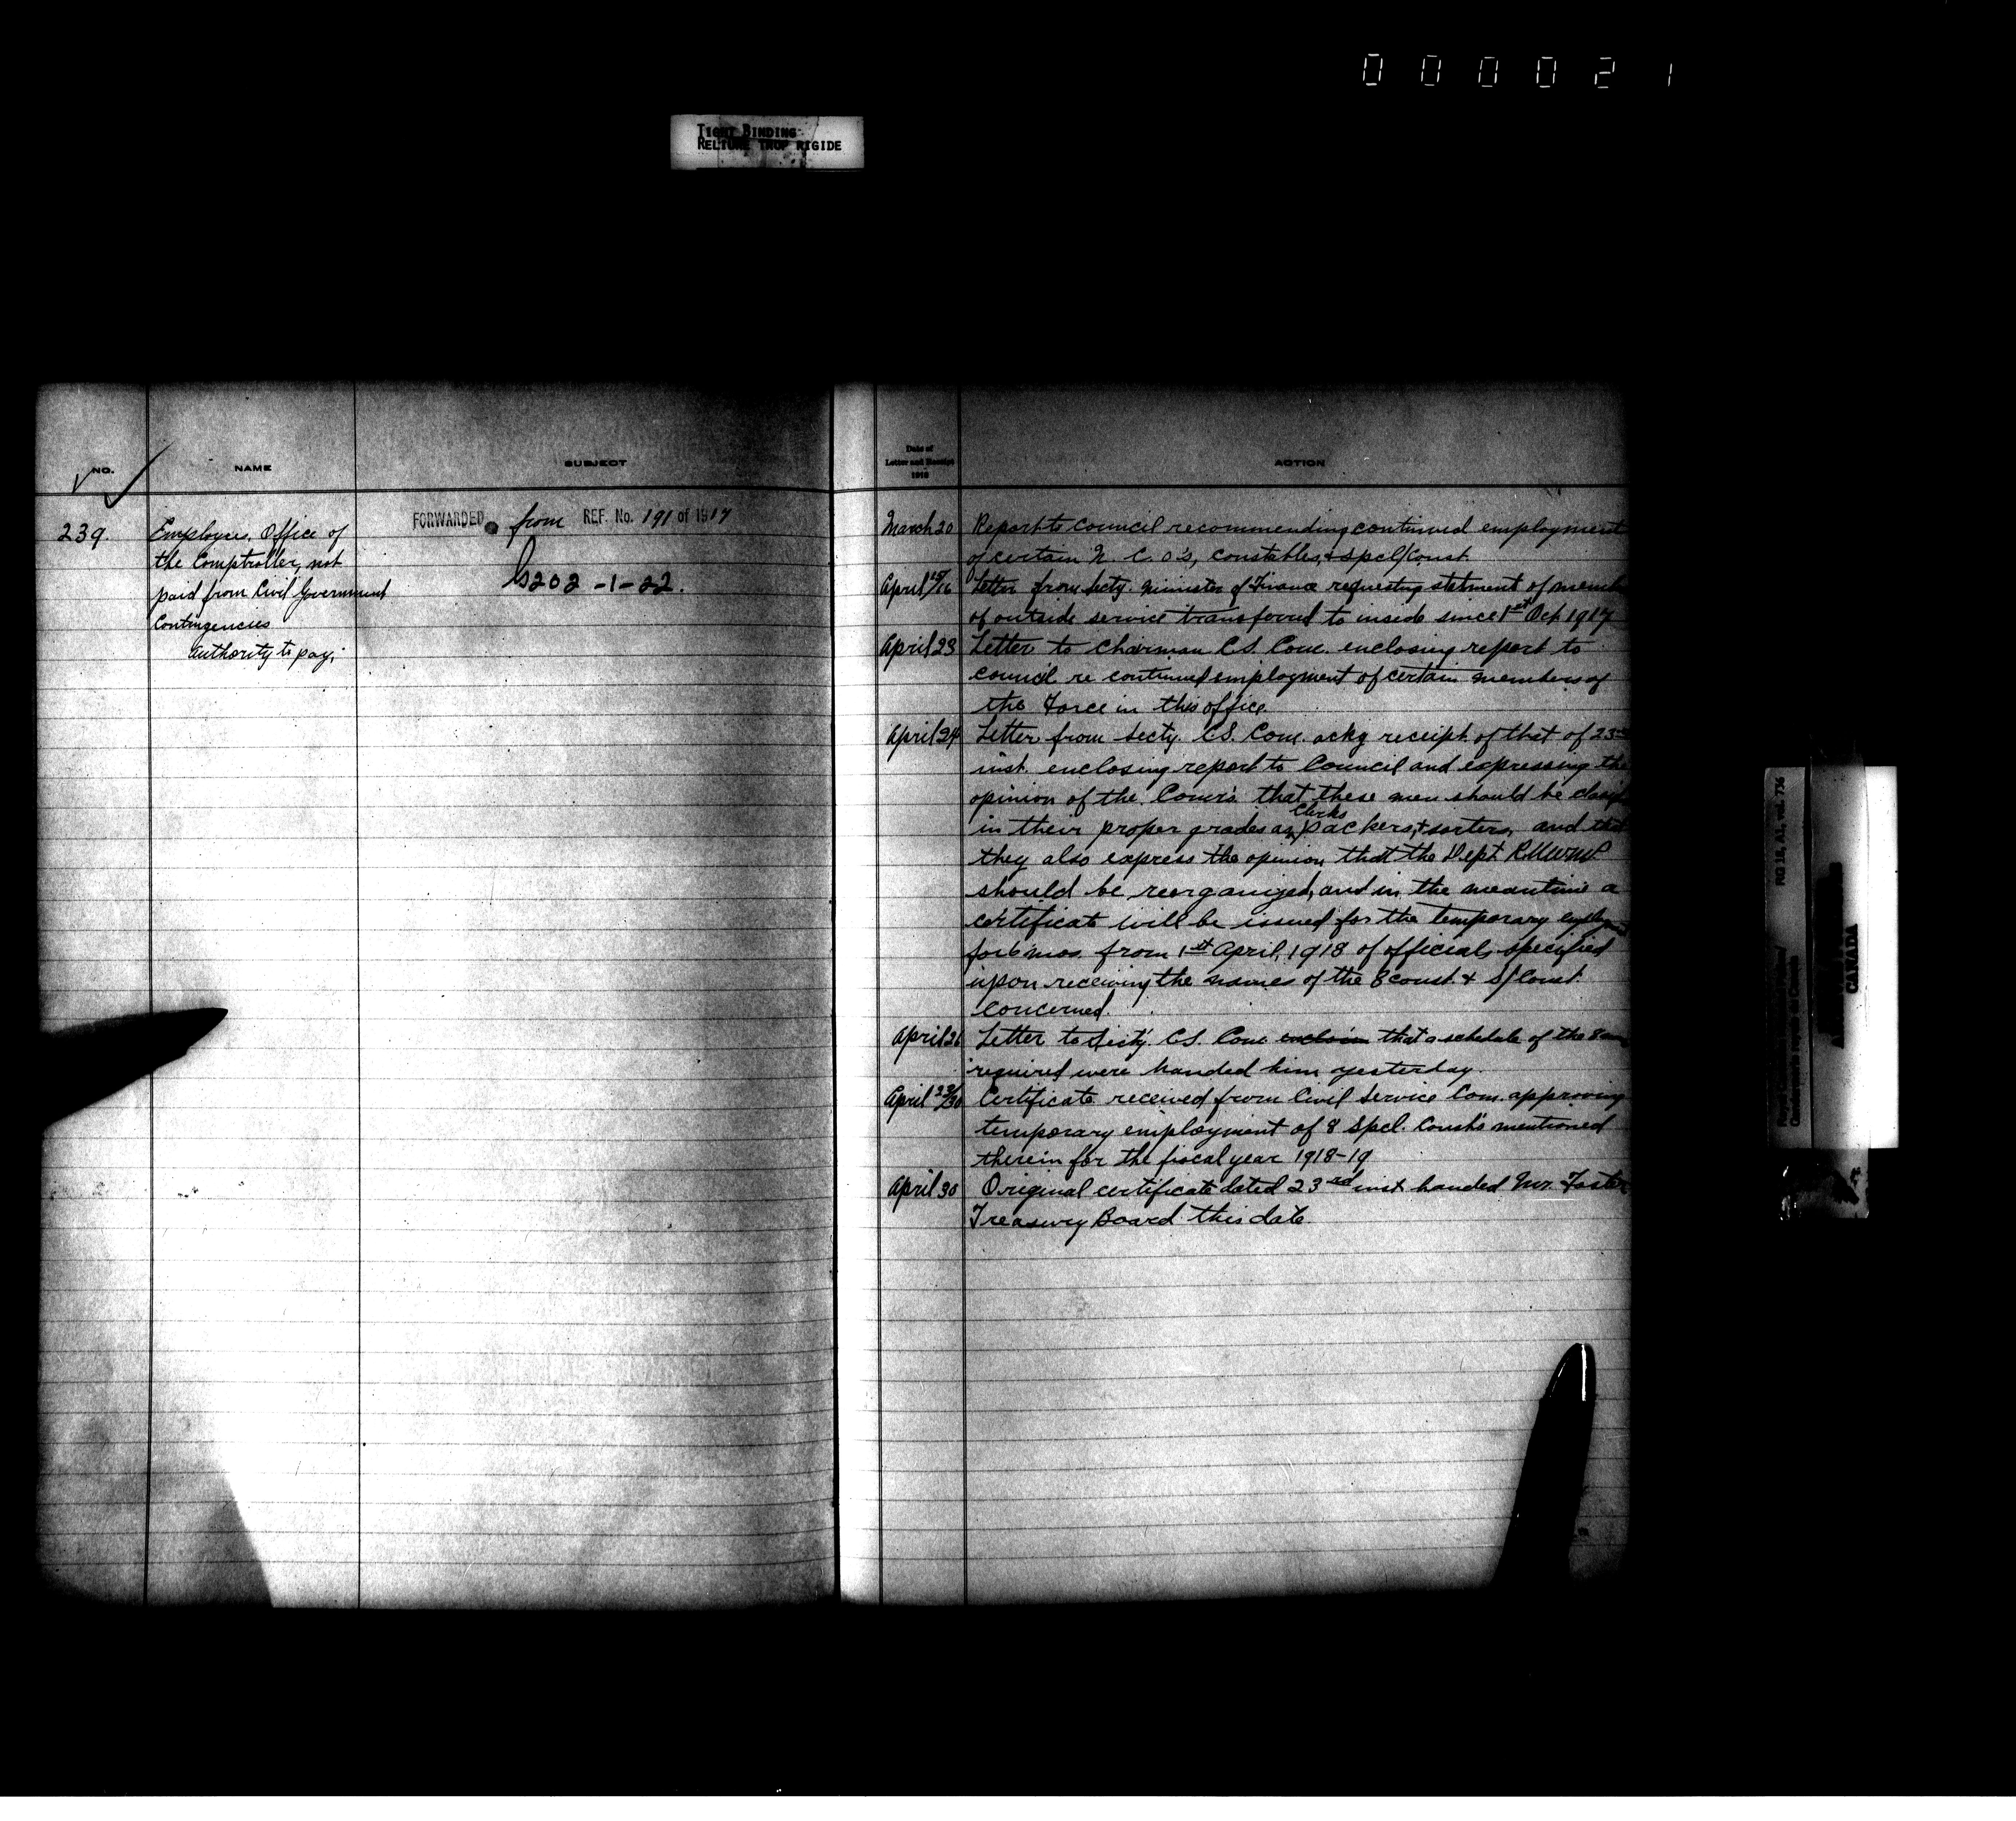 000021
TIGHT BINDING
RELIURE TROP RIGIDE
NO.
NAME
SUBJECT
239.
Employees, Office of
the Comptroller, not
paid from Civil Government
Contingencies
authority to pay.
FORWARDED from REF. No. 191 of 1917
G202-1-22.
Date of
Letter and Receipt
1918
ACTION
March 20 Report to Council recommending continued employment
of certain N.C.O's, constables, & spcl/Const.
April 15/16 Letter from Secty. Minister of Finance requesting statment of
of outside service transferred to inside since 1st Oct 1917
April 23 Letter to Chairman C.S. Com. enclosing report to
council re continued employment of certain members of
the Force in this office.
April 24 Letter from Secty. C.S. Com. ackg receipt of that of 23rd
inst. enclosing report to Council and expressing the
opinion of the Comrs. that these men should be
in their proper grades as Clerks packers, & sorters, and that
they also express the opinion that the Dept. R.N.W.M.P.
should be reorganized, and in the meantime a
certificate will be issued for the temporary
for 6 mos. from 1st April, 1918 of officials specified
upon receiving the names of the 8 const. & S/Const.
concerned.
April 26 Letter to Secty. C.S. Com. that a schedule of the 8
required were handed him yesterday.
April 23/30 Certificate received from Civil Service Com. approving
temporary employment of 8 Spcl. Const's mentioned
therein for the fiscal year 1918-19
April 30 Original certificate dated 23rd inst. handed Mr. Foster
Treasury Board this date.
RG 18, A1, vol. 736
CANADA